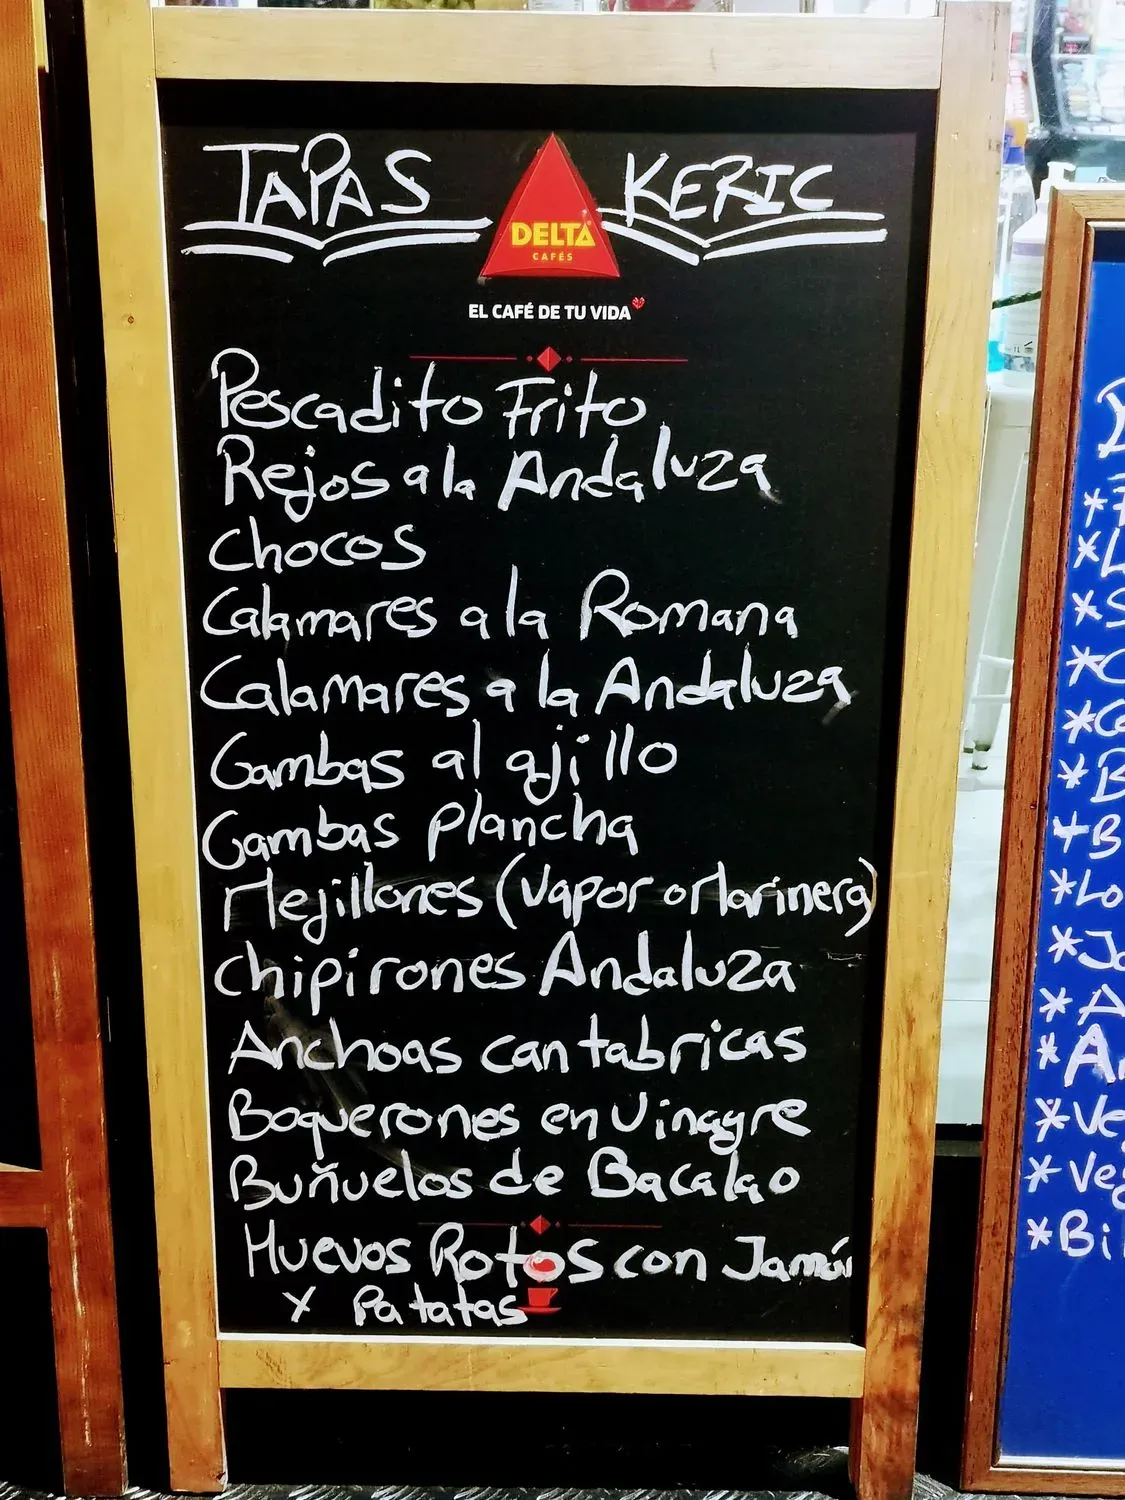 TAPAS KERIC
DELTA
CAFÉS
EL CAFÉ DE TU VIDA
Pescadito Frito
Rejos a la Andaluza
Chocos
Calamares a la Romana
Calamares a la Andaluza
Gambas al ajillo
Gambas plancha
Mejillones (Vapor o Marinera)
Chipirones Andaluza
Anchoas cantabricas
Boquerones en Vinagre
Buñuelos de Bacalao
Huevos Rotos con Jamón
Y Patatas